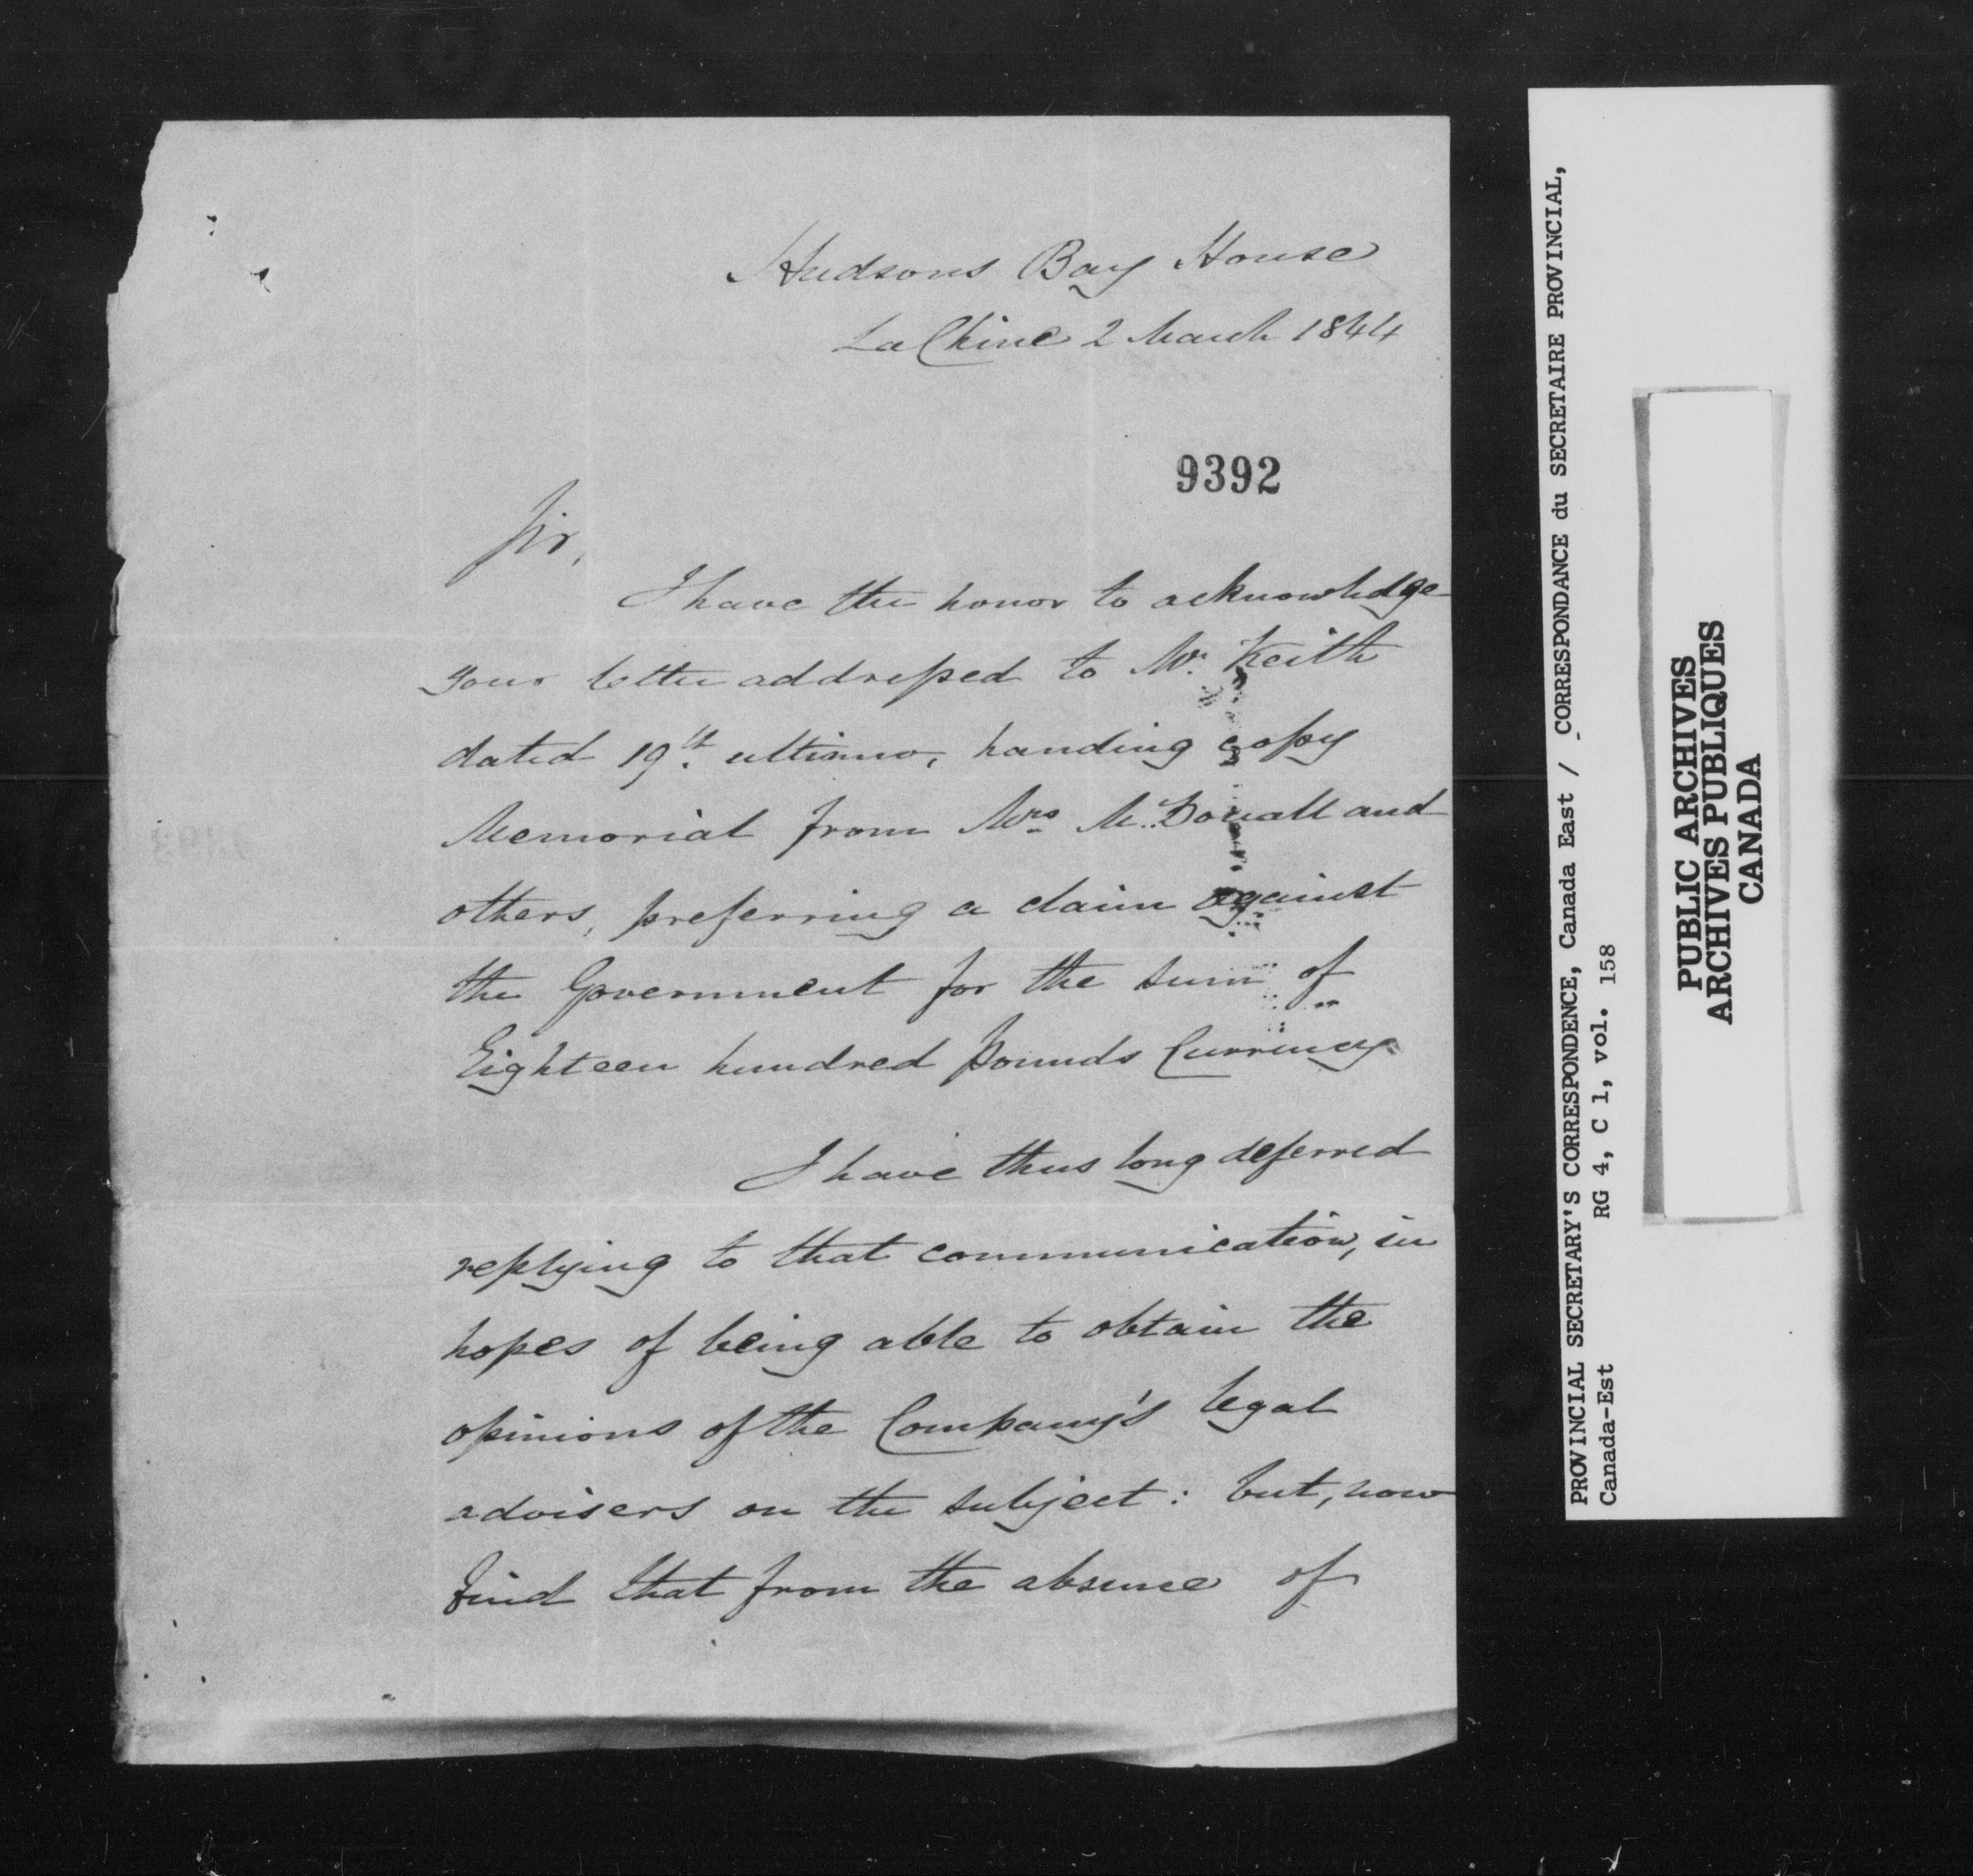 Hudsons Bay House
La Chine 2 March 1844
9392
Sir,
I have the honor to acknowledge
your letter addressed to Mr. Keith
dated 19th. ultimo, handing copy
Memorial from Mrs. and
others, preferring a claim against
the Government for the sum of
Eighteen hundred pounds Currency
I have thus long deferred
replying to that communication, in
hopes of being able to obtain the
opinions of the Company's legal
advisers on the subject: but, now
find that from the absence of
PROVINCIAL SECRETARY'S CORRESPONDENCE, Canada East / CORRESPONDANCE du SECRETAIRE PROVINCIAL,
Canada-Est RG 4, C 1, vol. 158
PUBLIC ARCHIVES
ARCHIVES PUBLIQUES
CANADA